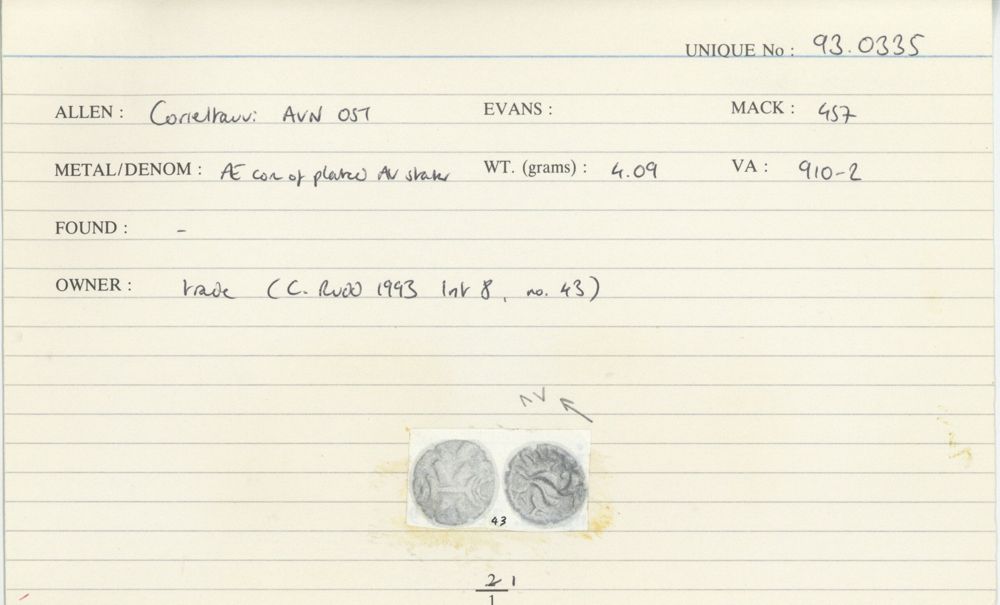 UNIQUE No : 93.0335
ALLEN : Corieltauvi AVN OST EVANS : MACK : 457
METAL/DENOM : Æ cor of plated AV stater WT. (grams) : 4.09 VA : 910-2
FOUND : -
OWNER : trade (C. Rudd 1993 list 8, no. 43)
43
21
1